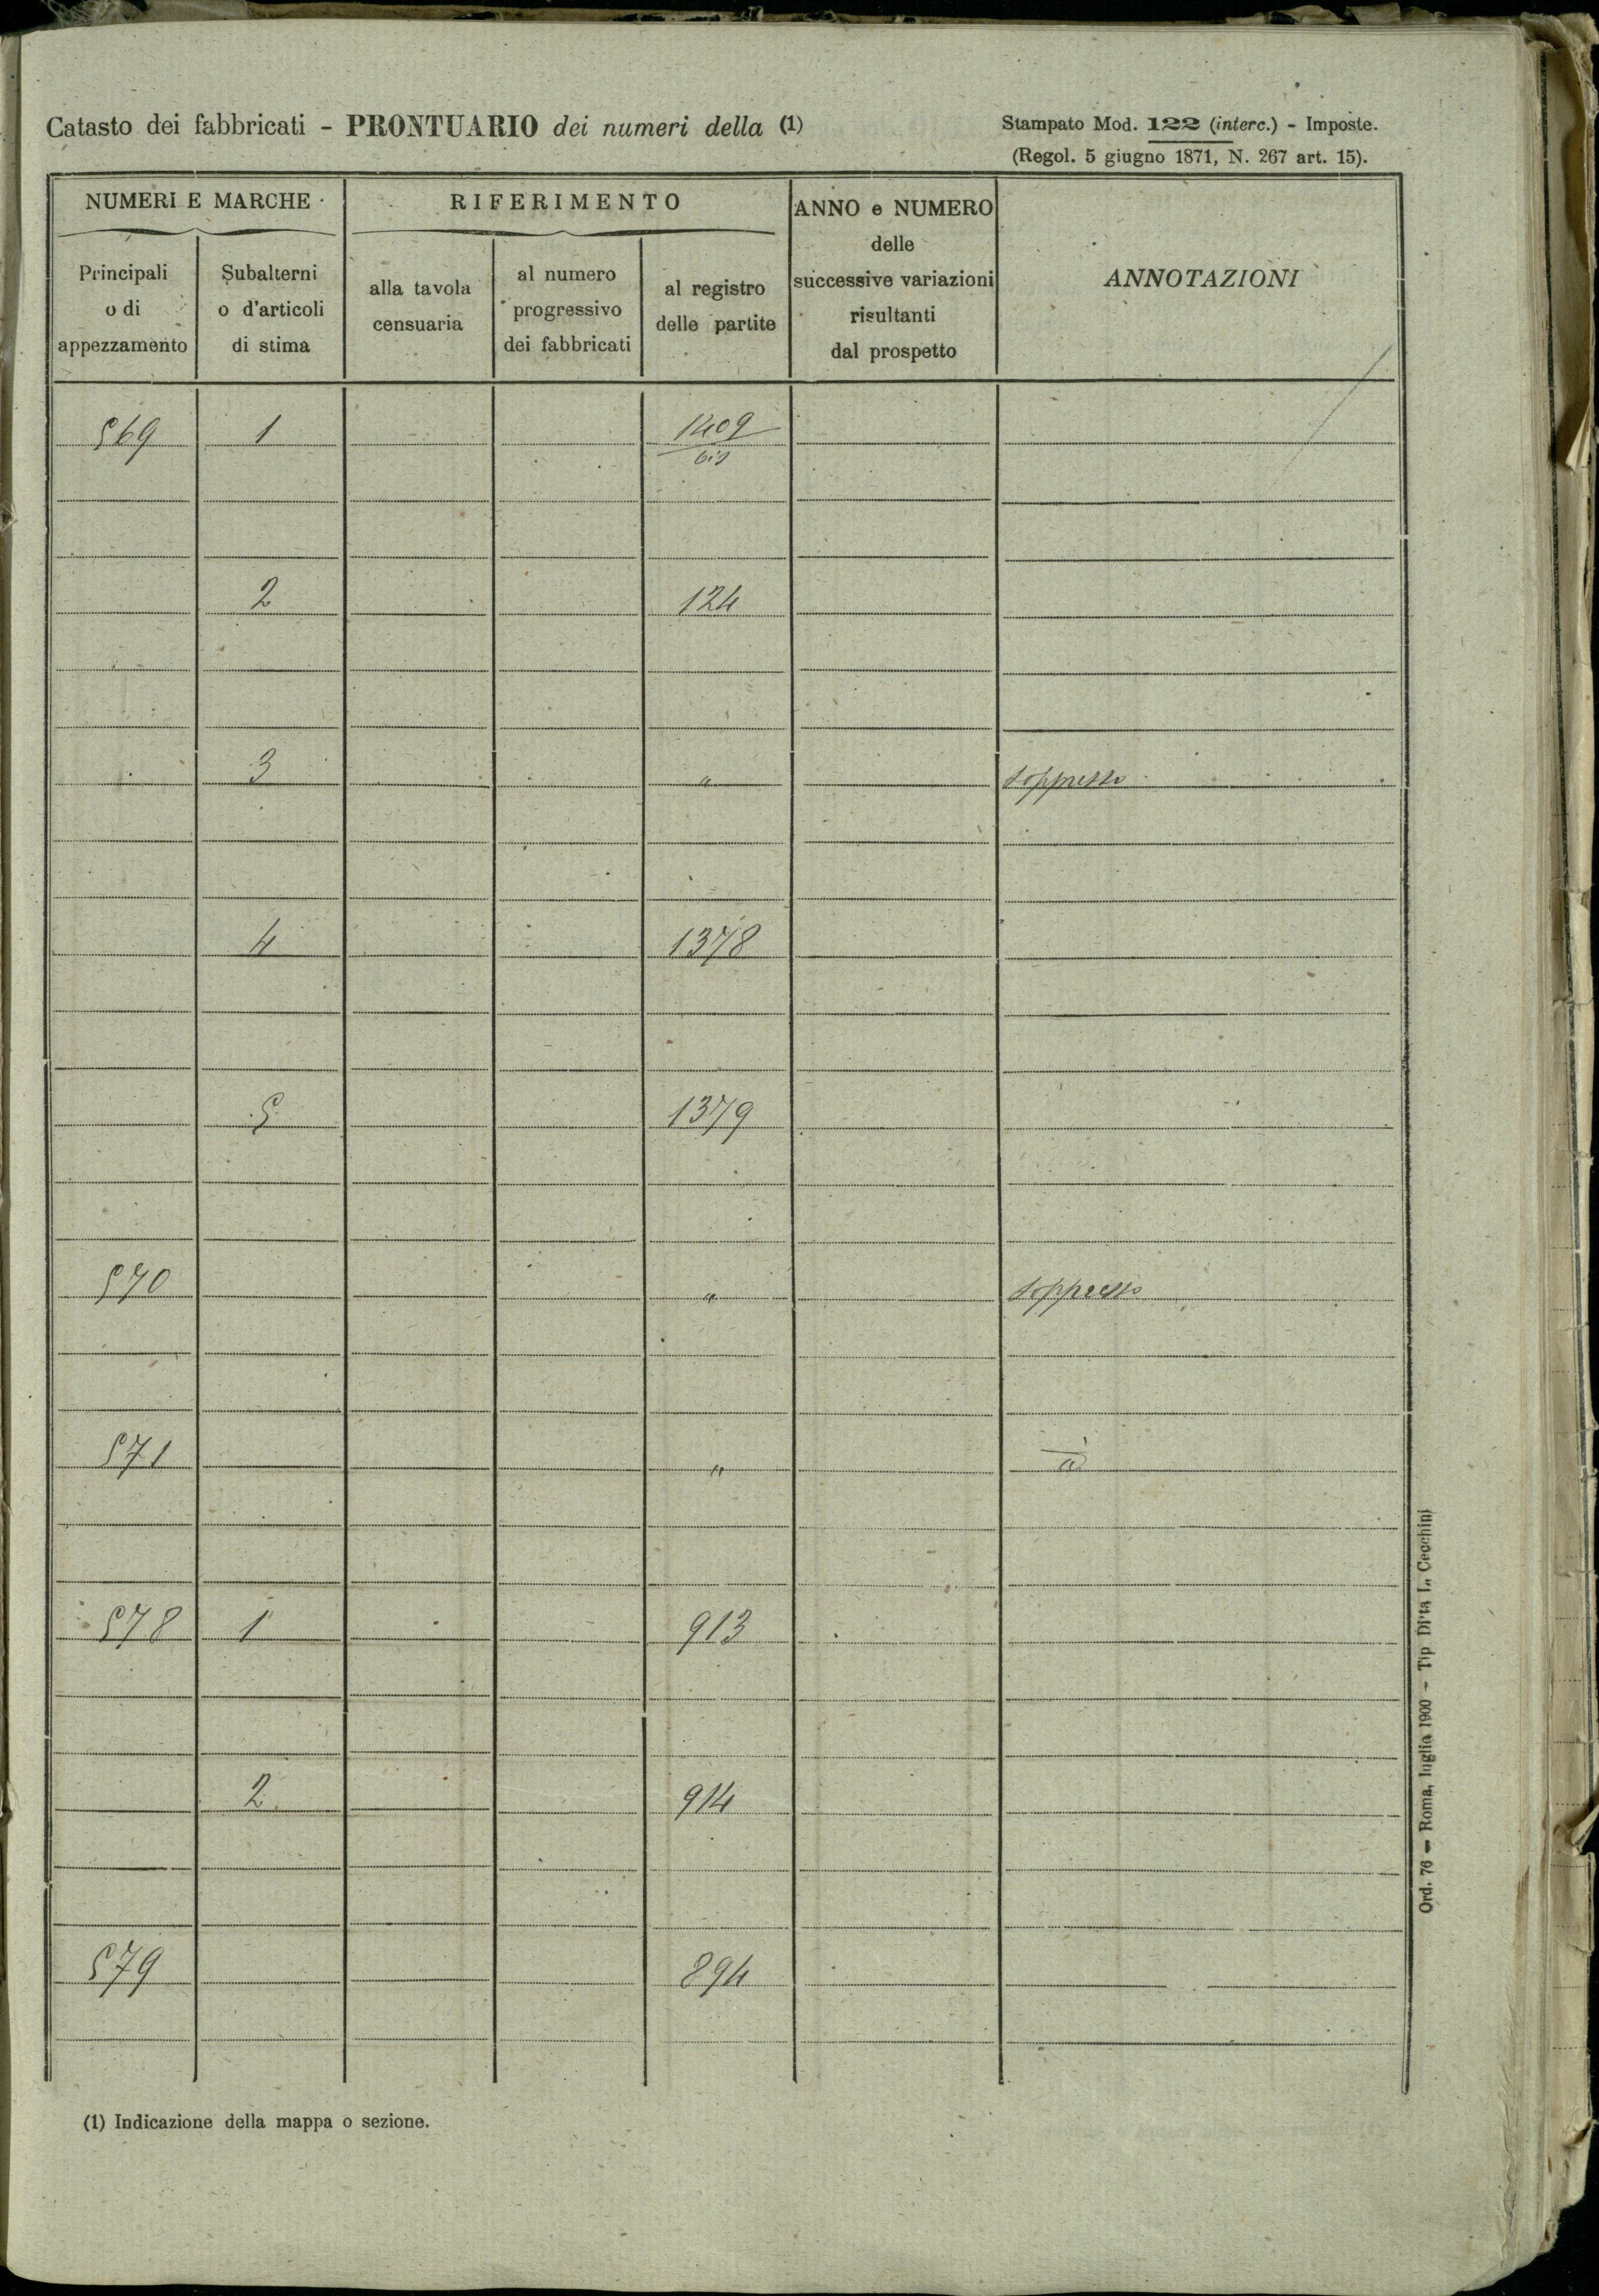 Catasto dei fabbricati - PRONTUARIO dei numeri della (1)
Stampato Mod. 122 (interc.) - Imposte.
(Regol. 5 giugno 1871, N. 267 art. 15).
NUMERI E MARCHE
RIFERIMENTO
ANNO e NUMERO
delle
successive variazioni
risultanti
dal prospetto
ANNOTAZIONI
Principali
o di
appezzamento
Subalterni
o d'articoli
di stima
alla tavola
censuaria
al numero
progressivo
dei fabbricati
al registro
delle partite
569 1 1409
bis
2 124
3 " soppresso
4 1378
5 1379
570 " soppresso
571 "
578 1 913
2 914
579 894
(1) Indicazione della mappa o sezione.
Ord. 76 - Roma, luglio 1900 - Tip Ditta L. Cecchini